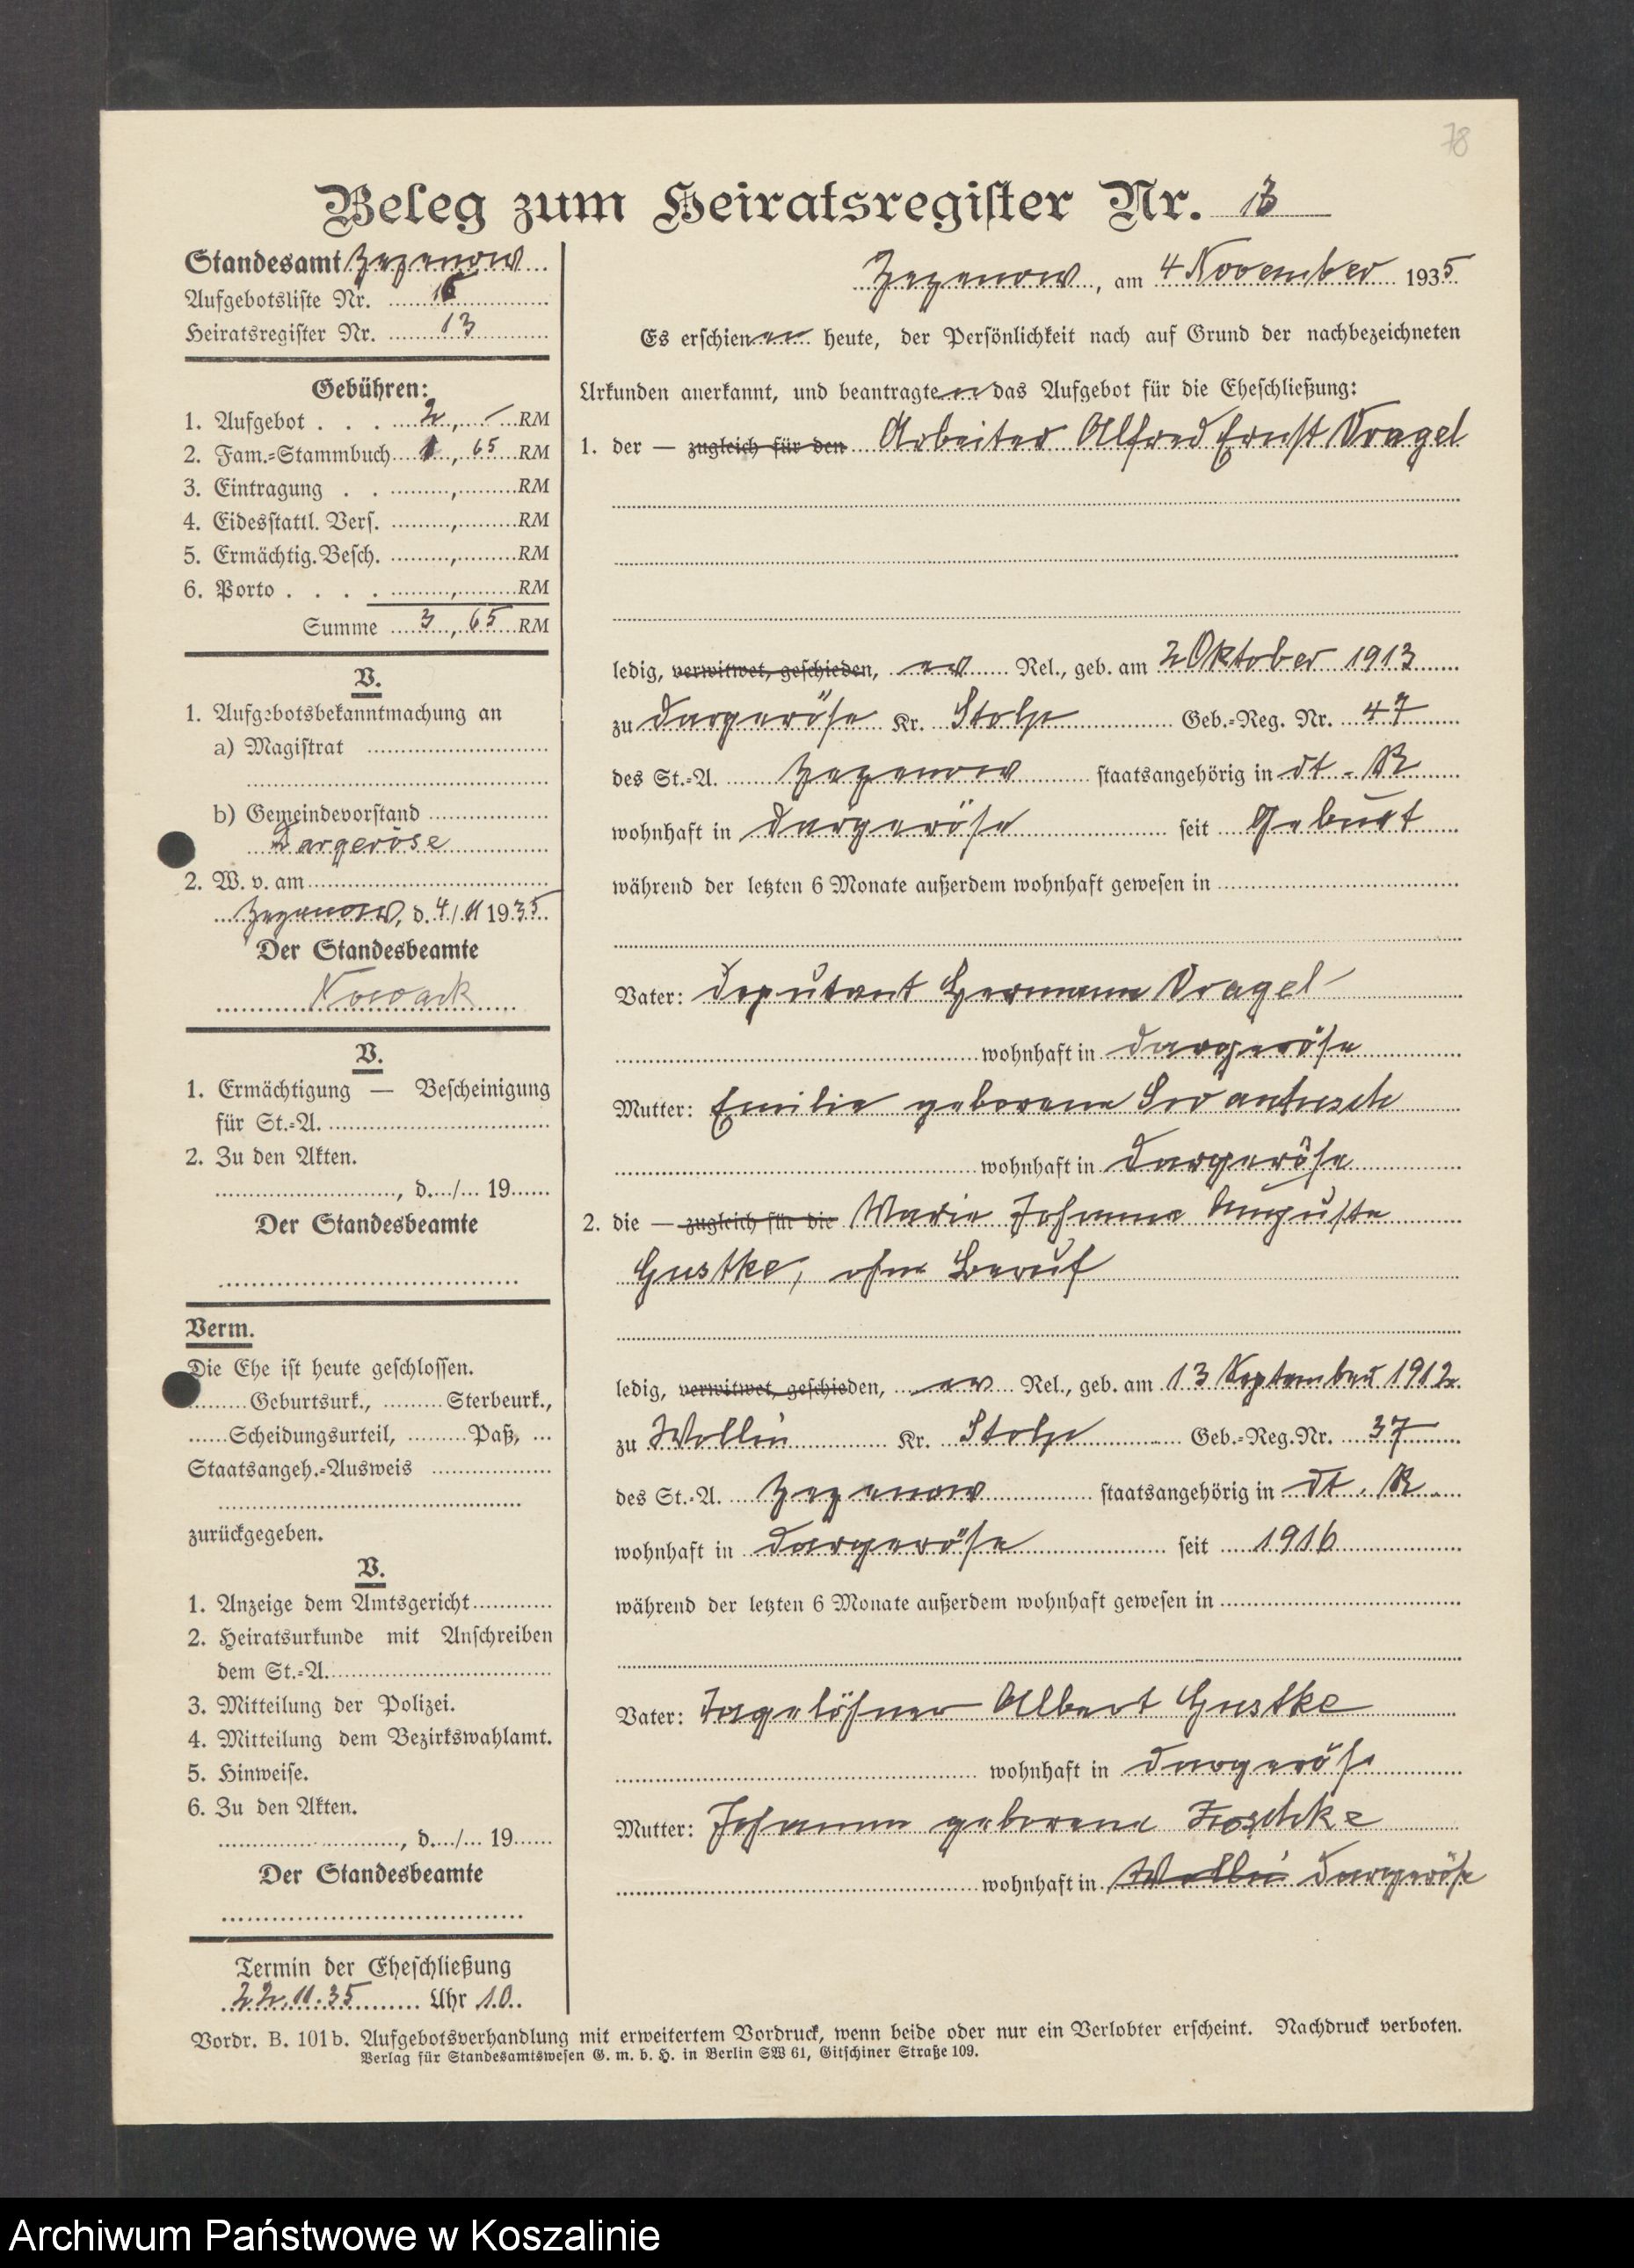 78
Beleg zum Heiratsregister Nr. 13
Standesamt Zezenow
Aufgebotsliste Nr. 15
Heiratsregister Nr. 13
Gebühren:
1. Aufgebot . . . 2,— RM
2. Fam.=Stammbuch 1, 65 RM
3. Eintragung . . , RM
4. Eidesstattl. Vers. , RM
5. Ermächtig. Besch. , RM
6. Porto . . . . , RM
Summe 3, 65 RM
V.
1. Aufgebotsbekanntmachung an
a) Magistrat
b) Gemeindevorstand
Dargeröse
2. W. v. am
Zezenow, d. 4/11 1935.
Der Standesbeamte
Nowack
V.
1. Ermächtigung — Bescheinigung
für St.=A.
2. Zu den Akten.
, d. / 19
Der Standesbeamte
Verm.
Die Ehe ist heute geschlossen.
Geburtsurk., Sterbeurk.,
Scheidungsurteil, Paß,
Staatsangeh.=Ausweis
zurückgegeben.
V.
1. Anzeige dem Amtsgericht
2. Heiratsurkunde mit Anschreiben
dem St.=A.
3. Mitteilung der Polizei.
4. Mitteilung dem Bezirkswahlamt.
5. Hinweise.
6. Zu den Akten.
, d. / 19
Der Standesbeamte
Termin der Eheschließung
22.11.35 Uhr 10.
Zezenow, am 4 November 1935
Es erschienen heute, der Persönlichkeit nach auf Grund der nachbezeichneten
Urkunden anerkannt, und beantragten das Aufgebot für die Eheschließung:
1. der — zugleich für den Arbeiter Alfred Ernst Vragel
ledig, verwitwet, geschieden, ev Rel., geb. am 2 Oktober 1913
zu Dargeröse Kr. Stolp Geb.=Reg. Nr. 47
des St.=A. Zezenow staatsangehörig in dt. R
wohnhaft in Dargeröse seit Geburt
während der letzten 6 Monate außerdem wohnhaft gewesen in
Vater: Deputant Hermann Vragel
wohnhaft in Dargeröse
Mutter: Emilie geborene
wohnhaft in Dargeröse
2. die — zugleich für die Marie Johanne Auguste
Gustke, ohne Beruf
ledig, verwitwet, geschieden, ev Rel., geb. am 13 September 1912
zu Wollin Kr. Stolp Geb.=Reg.Nr. 37
des St.=A. Zezenow staatsangehörig in dt. R.
wohnhaft in Dargeröse seit 1916
während der letzten 6 Monate außerdem wohnhaft gewesen in
Vater: Tagelöhner Albert Gustke
wohnhaft in Dargeröse
Mutter: Johanne geborene
wohnhaft in Wollin Dargeröse
Vordr. B. 101b. Aufgebotsverhandlung mit erweitertem Vordruck, wenn beide oder nur ein Verlobter erscheint. Nachdruck verboten.
Verlag für Standesamtswesen G. m. b. H. in Berlin SW 61, Gitschiner Straße 109.
Archiwum Państwowe w Koszalinie